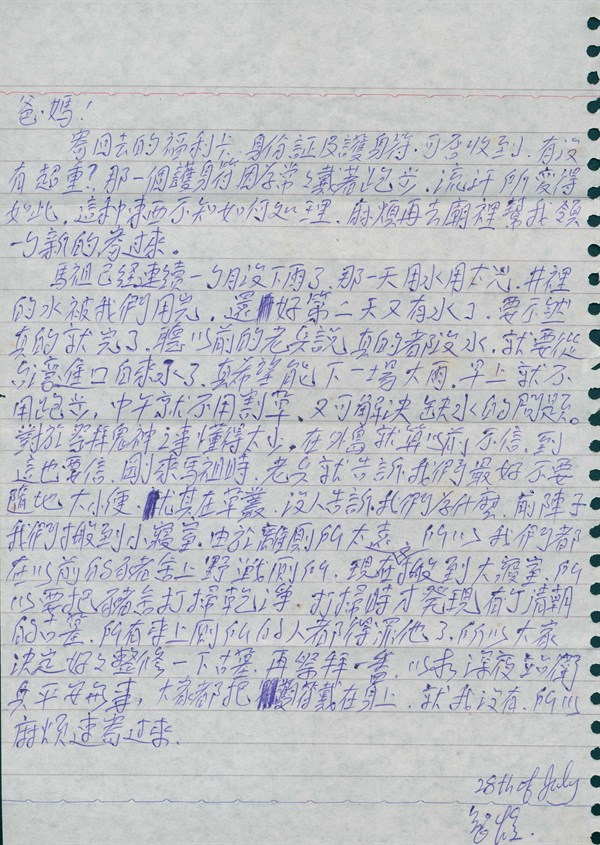 爸.媽!
寄回去的福利卡.身份証及護身符.可否收到.有沒
有超重?那一個護身符因為常戴著跑步.流汗所變得
如此.這種東西不知如何處理.麻煩再去廟裡幫我領
一個新的寄過來。
馬祖已經連續一個月沒下雨了.那一天用水用太兇.井裡
的水被我們用完.還好第二天又有水了.要不然
真的就完了.聽以前的老兵說.真的都沒水.就要從
台灣進口自來水了.真希望能下一場大雨.早上就不
用跑步,中午就不用割草.又可解決缺水的問題。
對於祭拜鬼神之事懂得太少.在外島就算以前不信.到
這也要信.剛來馬祖時.老兵就告訴我們最好不要
隨地大小便.尤其在草叢.沒人告訴我們為什麼.前陣子
我們才搬到小寢室.由於離廁所太遠.所以我們都
在以前的豬舍上野戰廁所.現在搬到大寢室.所
以要把豬舍打掃乾淨.打掃時才發現有個清朝
的古墓.所有在上廁所的人都得罪他了.所以大家
決定好好整修一下古墓.再祭拜一番.以求深夜站衛
兵平安無事,大家都把戴在身上.就我沒有.所以
麻煩速寄過來.
28th of July